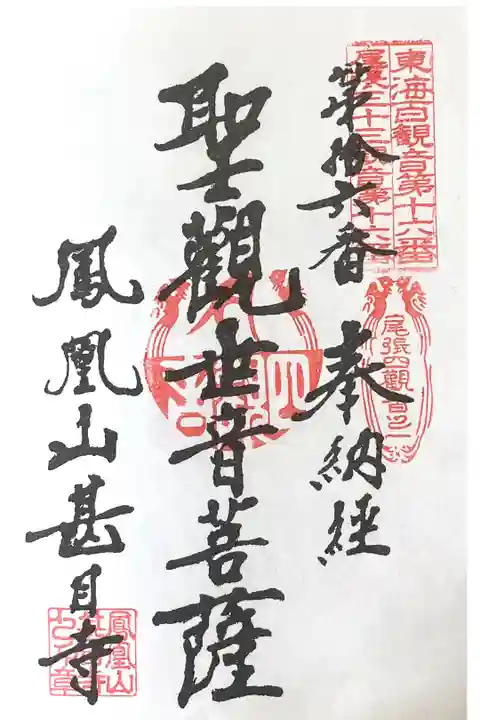 東海百観音第十六番
尾張三十三観音第十六番
尾張四観音之一
第拾六番 奉納経
聖觀世音菩薩
鳳凰山甚目寺
鳳凰山